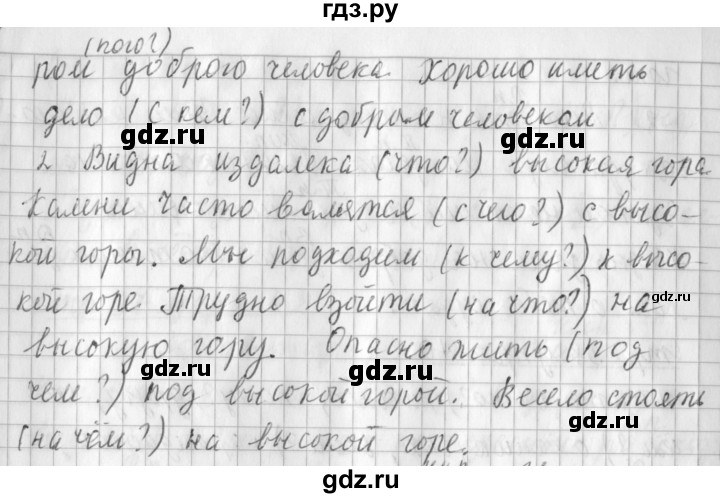 гдз.ру
(кого?)
ром доброго человека Хорошо иметь
дело (с кем?) с добрым человеком
gdz.ru gdz.ru
2 Видна издалека (что?) высокая гора
Камни часто валятся (с чего?) с высо-
gdz.ru gdz.ru
кой горы. Мы подходим (к чему?) к высо-
кой горе Трудно взойти (на что?) на
gdz.ru
высокую гору. Опасно жить (под
gdz.ru gdz.ru
чем?) под высокой горой. Весело стоять
(на чём?) на высокой горе.
gdz.ru
gdz.ru